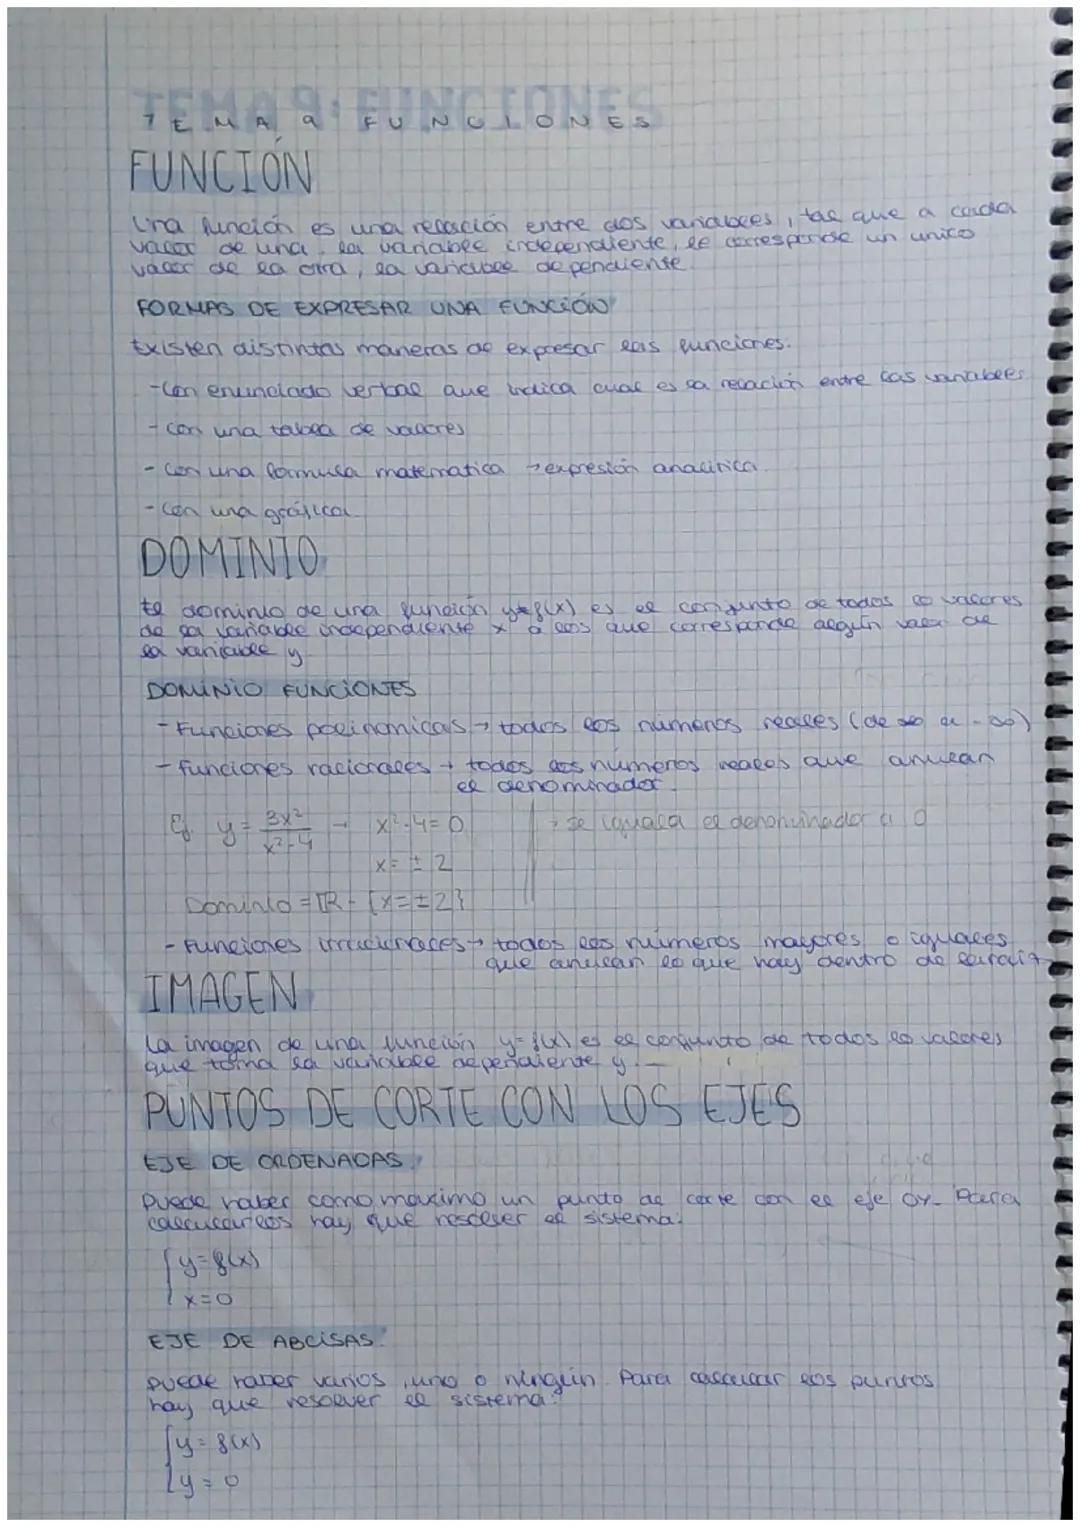 TEMA 9: FUNCIONES
FUNCIÓN
Una función es una relación entre dos variables, tal que a cada
valor de una, la variable independiente, le corresponde un único
valor de la otra, la variable dependiente.
FORMAS DE EXPRESAR UNA FUNCIÓN
Existen distintas maneras de expresar las funciones:
-Con enunciado verbal que indica cual es la relación entre las variables
-con una tabla de valores
-Con una formula matematica → expresión analitica.
-Con una gráfica.
DOMINIO
El dominio de una función y=f(x) es el conjunto de todos lo valores
de la variable independiente x a los que corresponde algún valor de
la variable y
DOMINIO FUNCIONES
-Funciones polinomicas → todos los números reales (de ∞ a -∞)
-funciones racionales → todos los números reales que anulan
el denominador.
Ej y = 3x²/x²-4 → x²-4=0 → se iguala el denominador a 0
x = ± 2
Dominio = ℝ - {x=±2}
-Funciones irracionales → todos los números mayores o iguales
que anulan lo que hay dentro de la raiz
IMAGEN
La imagen de una función y=f(x) es el conjunto de todos lo valores
que toma la variable dependiente y.
PUNTOS DE CORTE CON LOS EJES
EJE DE ORDENADAS
Puede haber como maximo un punto de corte con el eje OY. Para
calcularlos hay que resolver el sistema:
{y=f(x)
{x=0
EJE DE ABCISAS
puede haber varios, uno o ningún. Para calcular los puntos
hay que resolver el sistema:
{y=f(x)
{y=0